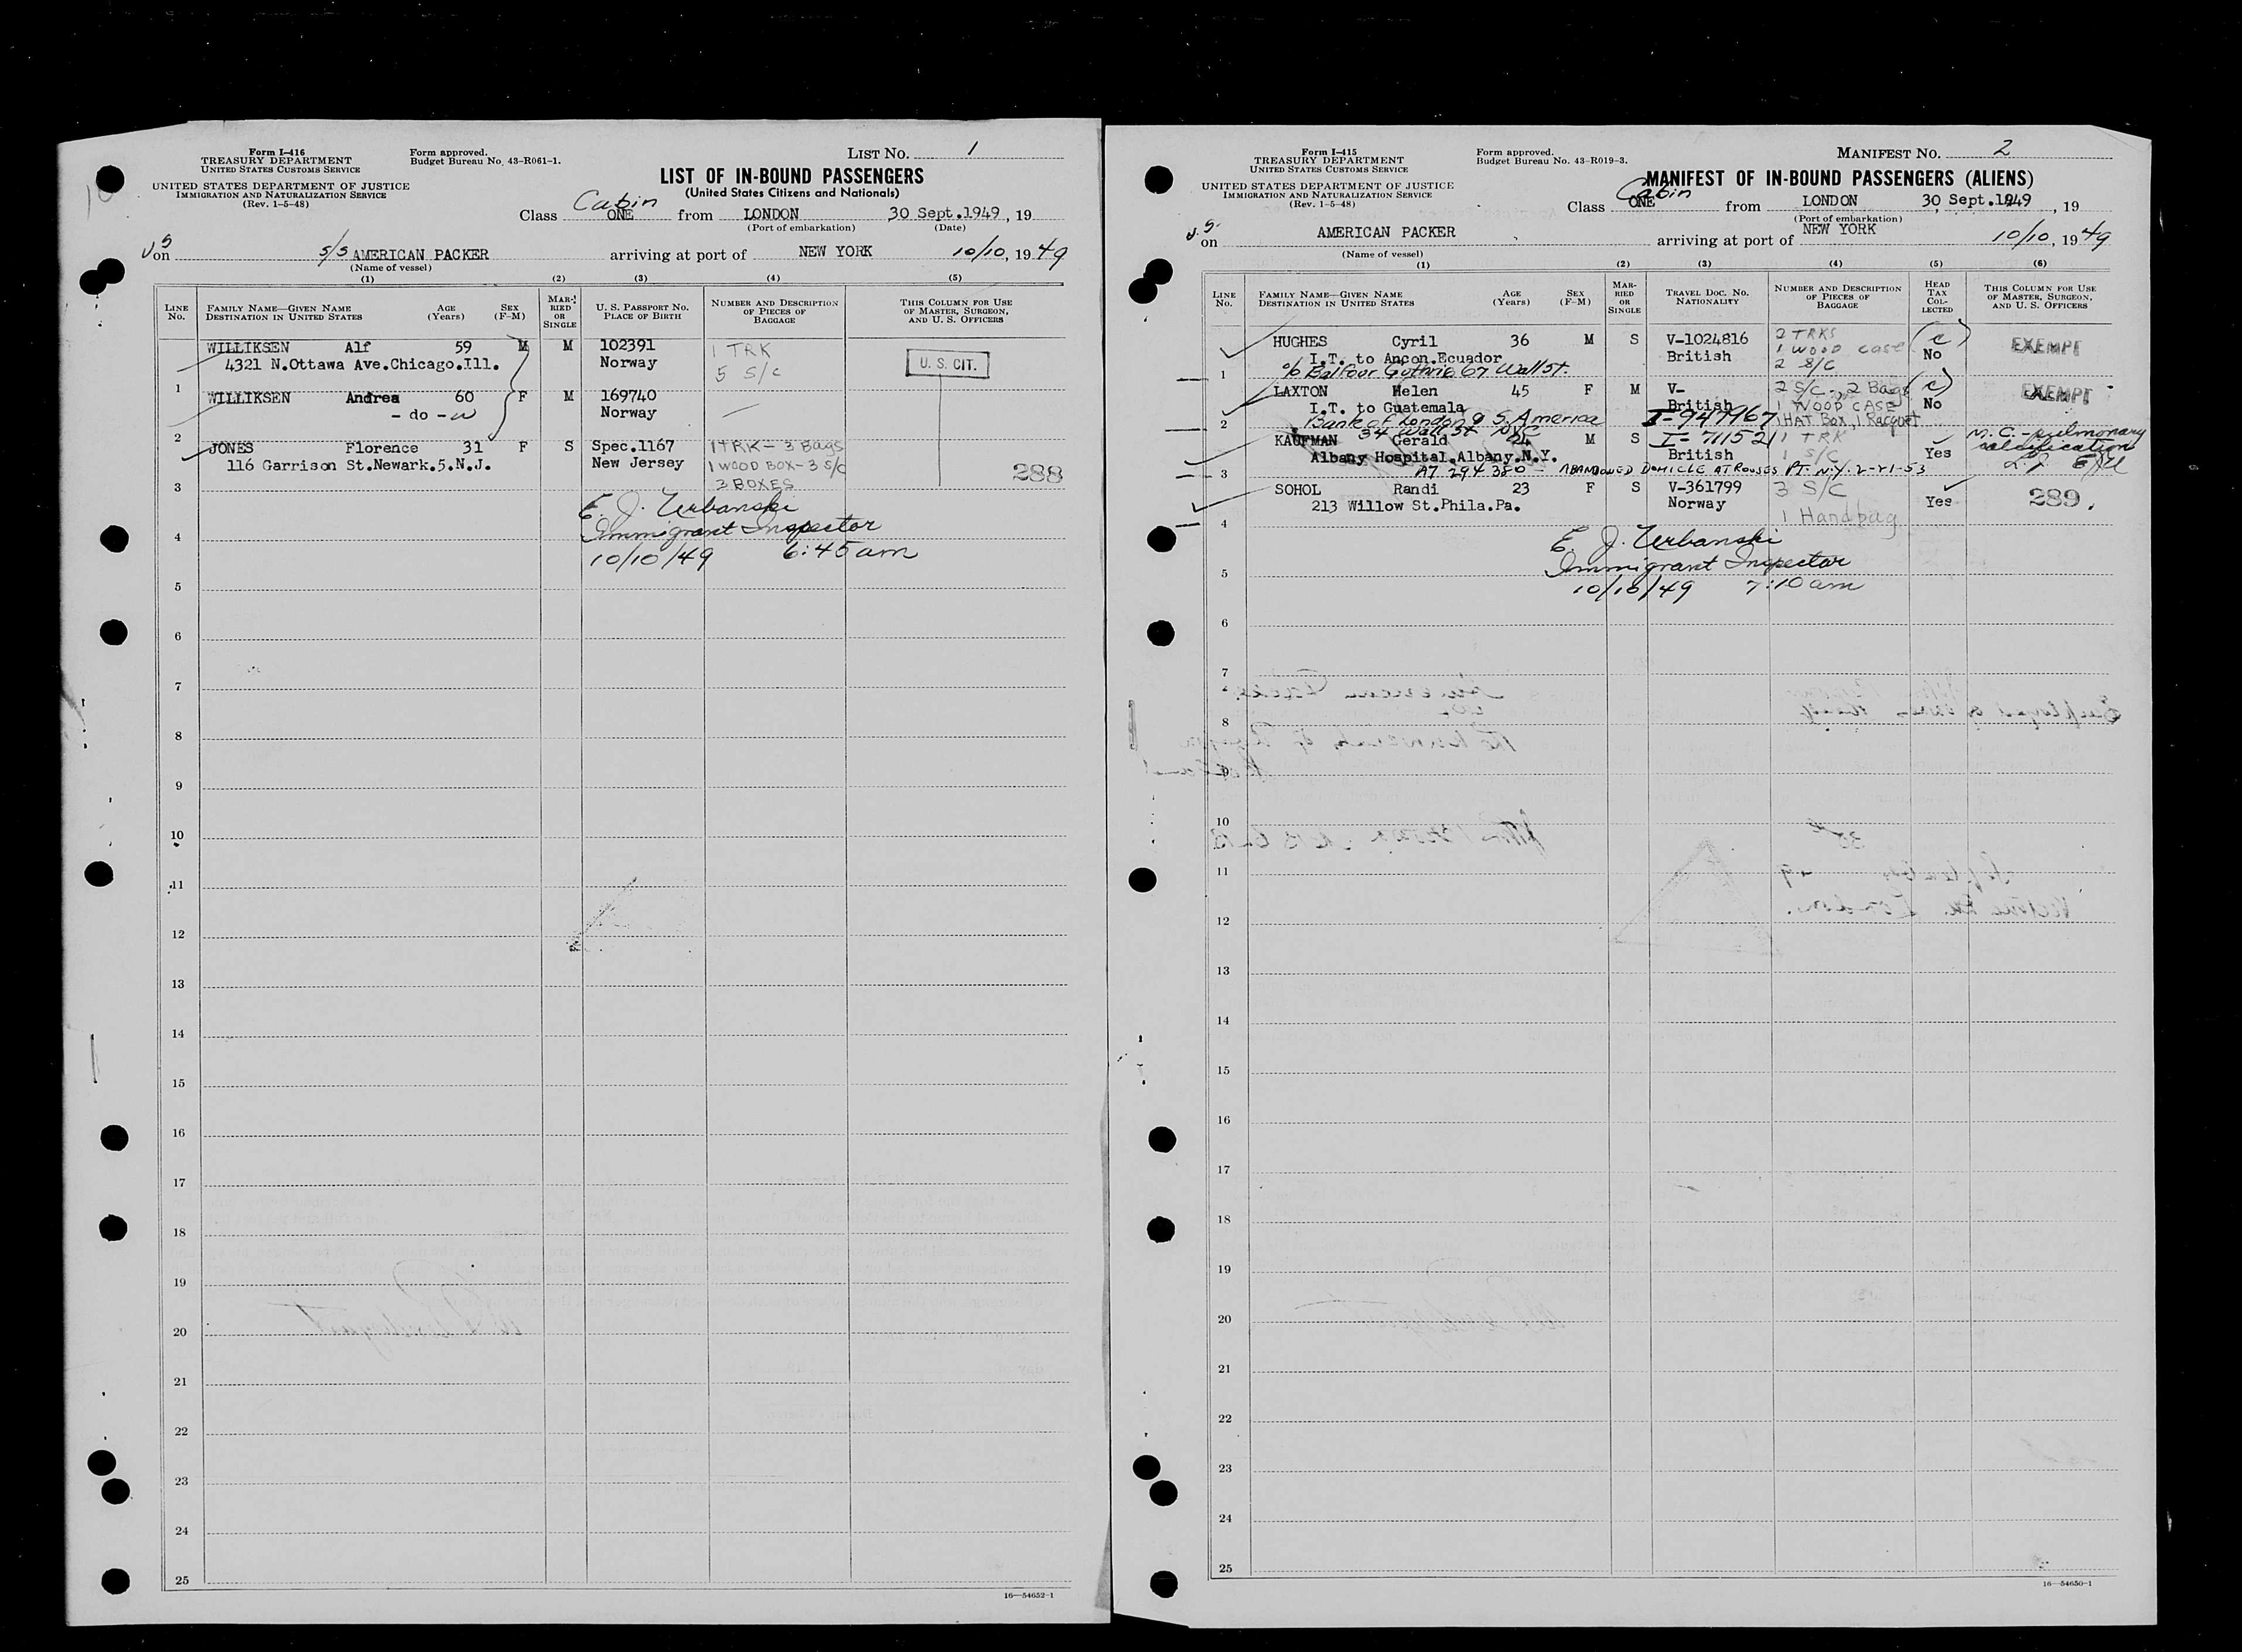 Form I-416
TREASURY DEPARTMENT
UNITED STATES CUSTOMS SERVICE
UNITED STATES DEPARTMENT OF JUSTICE
IMMIGRATION AND NATURALIZATION SERVICE
(Rev. 1-5-48)
Form approved.
Budget Bureau No. 43-R061-1.
LIST NO. 1
LIST OF IN-BOUND PASSENGERS
(United States Citizens and Nationals)
Cabin
Class ONE from LONDON 30 Sept.1949, 19
(Port of embarkation) (Date)
on S/S AMERICAN PACKER arriving at port of NEW YORK 10/10, 1949
(Name of vessel)
(1) (2) (3) (4) (5)
LINE No. FAMILY NAME—GIVEN NAME DESTINATION IN UNITED STATES AGE (Years) SEX (F-M) MARRIED OR SINGLE U. S. PASSPORT NO. PLACE OF BIRTH NUMBER AND DESCRIPTION OF PIECES OF BAGGAGE THIS COLUMN FOR USE OF MASTER, SURGEON, AND U. S. OFFICERS
WILLIKSEN Alf 59 M M 102391 1 TRK
4321 N.Ottawa Ave.Chicago.Ill. Norway 5 S/C U. S. CIT.
1
WILLIKSEN Andrea 60 F M 169740
- do - Norway —
2
JONES Florence 31 F S Spec.1167 1 TRK - 3 Bags
116 Garrison St.Newark.5.N.J. New Jersey 1 WOOD BOX - 3 S/C 288
3 3 BOXES
E. J. Urbanski
Immigrant Inspector
4
10/10/49 6:45 am
5
6
7
8
9
10
11
12
13
14
15
16
17
18
19
20
21
22
23
24
25
16—54652-1
Form I-415
TREASURY DEPARTMENT
UNITED STATES CUSTOMS SERVICE
UNITED STATES DEPARTMENT OF JUSTICE
IMMIGRATION AND NATURALIZATION SERVICE
(Rev. 1-5-48)
Form approved.
Budget Bureau No. 43-R019-3.
MANIFEST NO. 2
MANIFEST OF IN-BOUND PASSENGERS (ALIENS)
Cabin
Class ONE from LONDON 30 Sept.1949, 19
(Port of embarkation)
on AMERICAN PACKER arriving at port of NEW YORK 10/10, 1949
(Name of vessel)
(1) (2) (3) (4) (5) (6)
LINE No. FAMILY NAME—GIVEN NAME DESTINATION IN UNITED STATES AGE (Years) SEX (F-M) MARRIED OR SINGLE TRAVEL DOC. NO. NATIONALITY NUMBER AND DESCRIPTION OF PIECES OF BAGGAGE HEAD TAX COLLECTED THIS COLUMN FOR USE OF MASTER, SURGEON, AND U. S. OFFICERS
HUGHES Cyril 36 M S V-1024816 2 TRKS (c) EXEMPT
I.T. to Ancon.Ecuador British 1 WOOD case No
1 c/o Balfour Guthrie 67 Wall St. 2 S/C
LAXTON Helen 45 F M V- 2 S/C - 2 Bags (c) EXEMPT
I.T. to Guatemala British 1 WOOD CASE No
2 Bank of London & S. America I-947967 1 HAT Box, 1 Racquet
34 Wall St NYC
KAUFMAN Gerald 24 M S I-711521 1 TRK M.C. - pulmonary
Albany Hospital.Albany.N.Y. British 1 S/C Yes calcification
3 A7 294 380 - ABANDONED DOMICILE AT ROUSES PT. N.Y. 2-21-53
SOHOL Randi 23 F S V-361799 3 S/C
213 Willow St.Phila.Pa. Norway Yes 289.
4 1 Handbag
E. J. Urbanski
Immigrant Inspector
5
10/10/49 7:10 am
6
7
8
9
10
11
12
13
14
15
16
17
18
19
20
21
22
23
24
25
16—54650-1